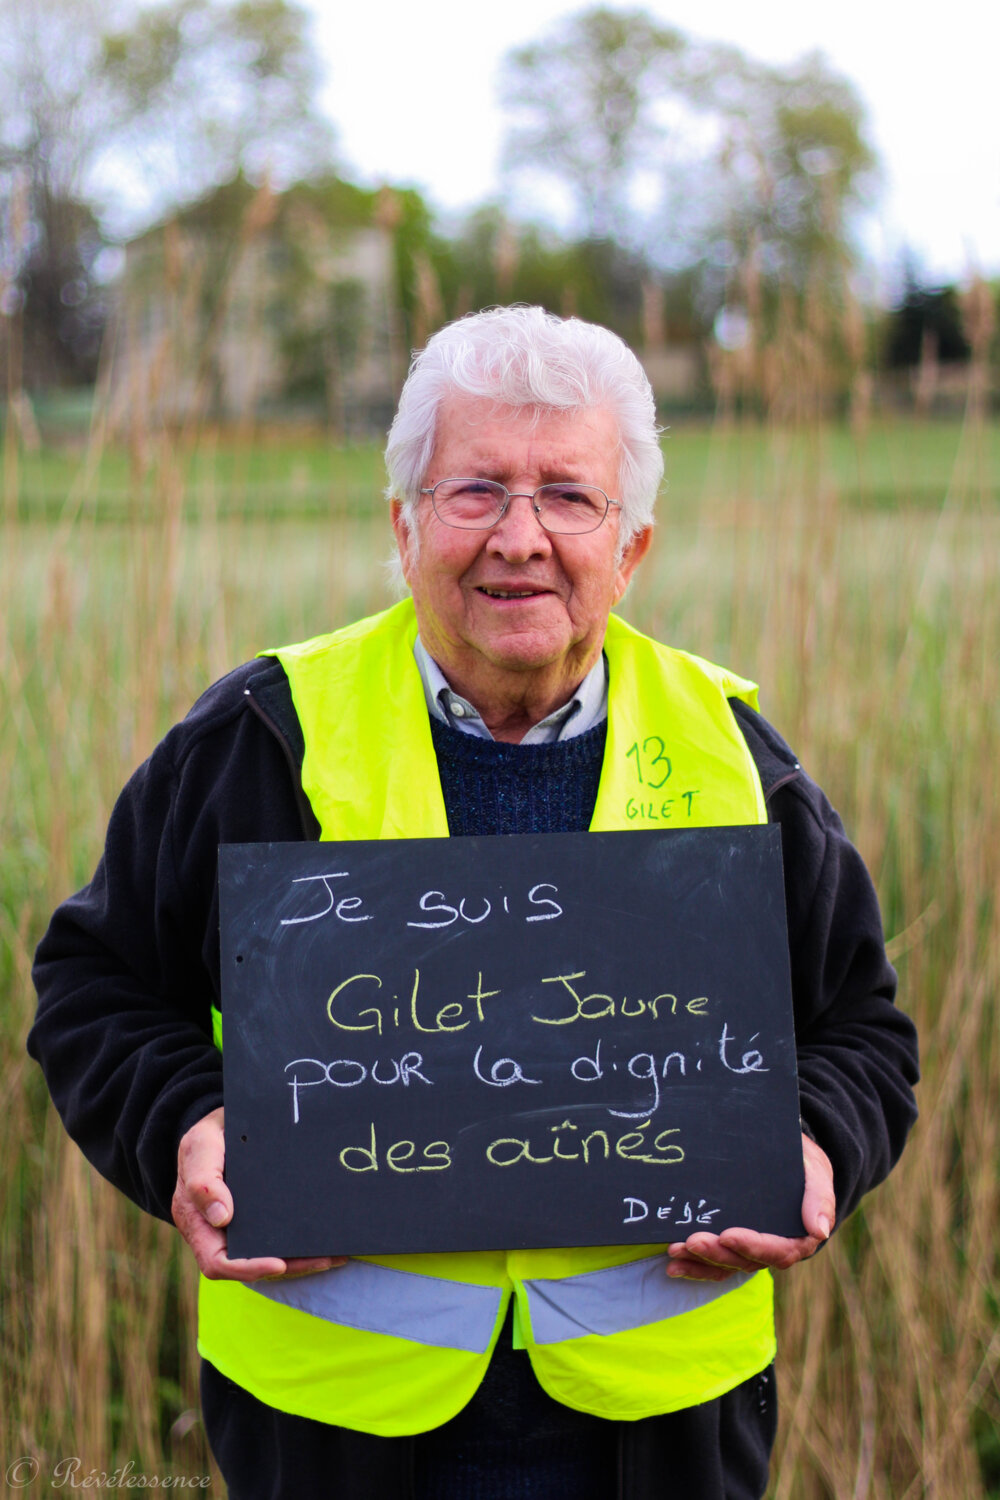 13
GILET
Je suis
Gilet Jaune
pour la dignité
des aînés
DéDé
© Révélessence